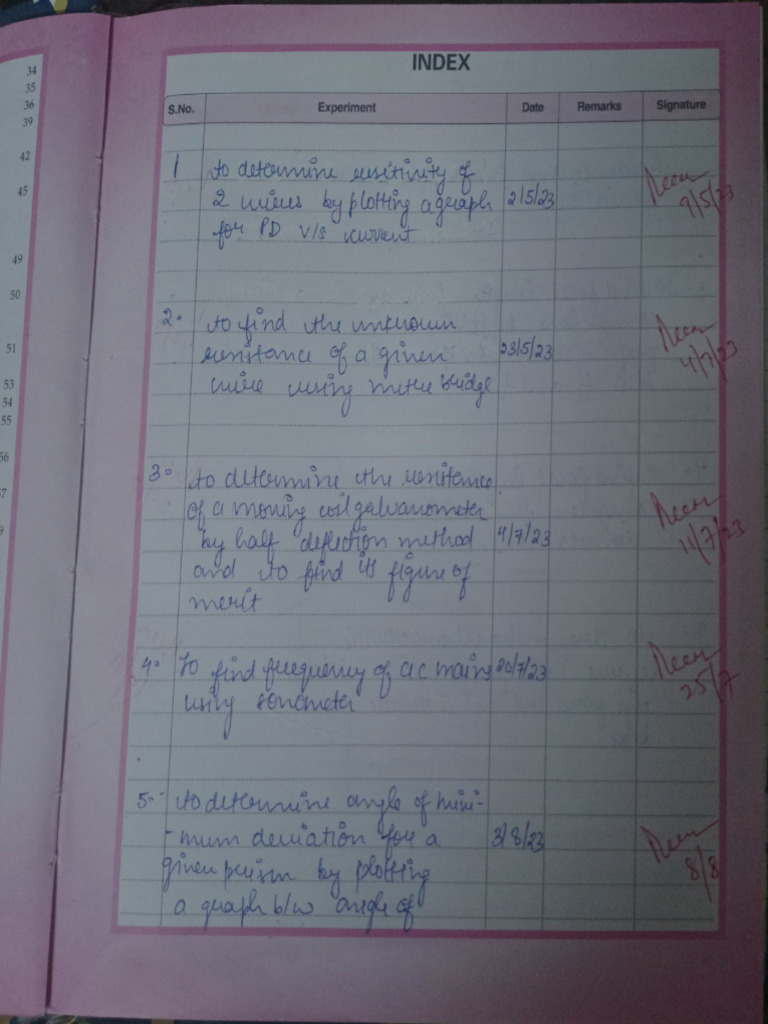 34
35
36
39
42
45
49
50
51
53
54
55
56
7
9
INDEX
S.No. Experiment Date Remarks Signature
1 to determine resistivity of
2 wires by plotting a graph 2/5/23
for PD v/s current
9/5/23
2. to find the unknown
resistance of a given 23/5/23
wire using metre bridge
4/7/23
3. to determine the resistance
of a moving coil galvanometer
by half deflection method 4/7/23
and to find its figure of
merit
11/7/23
4. To find frequency of ac mains 20/7/23
using sonometer
25/7
5. to determine angle of mini-
-mum deviation for a 3/8/23
given prism by plotting
a graph b/w angle of
8/8